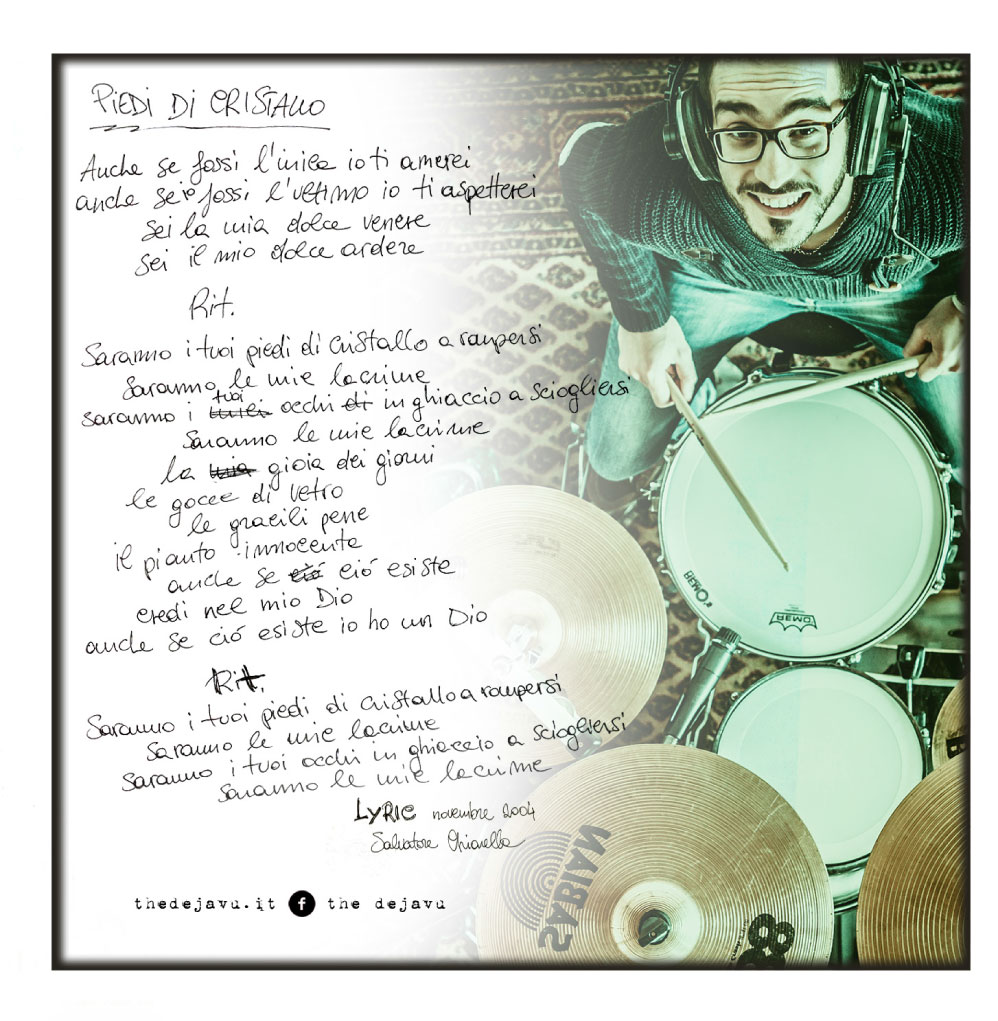 PIEDI DI CRISTALLO
Anche se fossi l'unica io ti amerei
anche se io fossi l'ultimo io ti aspetterei
sei la mia dolce venere
sei il mio dolce ardere
Rit.
Saranno i tuoi piedi di cristallo a rompersi
saranno le mie lacrime
saranno i tuoi occhi di in ghiaccio a sciogliersi
saranno le mie lacrime
la mia gioia dei giorni
le gocce di vetro
le gracili pene
il pianto innocente
anche se ciò ciò esiste
credi nel mio Dio
anche se ciò esiste io ho un Dio
Rit.
Saranno i tuoi piedi di cristallo a rompersi
saranno le mie lacrime
saranno i tuoi occhi in ghiaccio a sciogliersi
saranno le mie lacrime
LYRIC novembre 2004
Salvatore Chiarella
thedejavu.it f the dejavu
REMO
REMO
SABIAN
B8